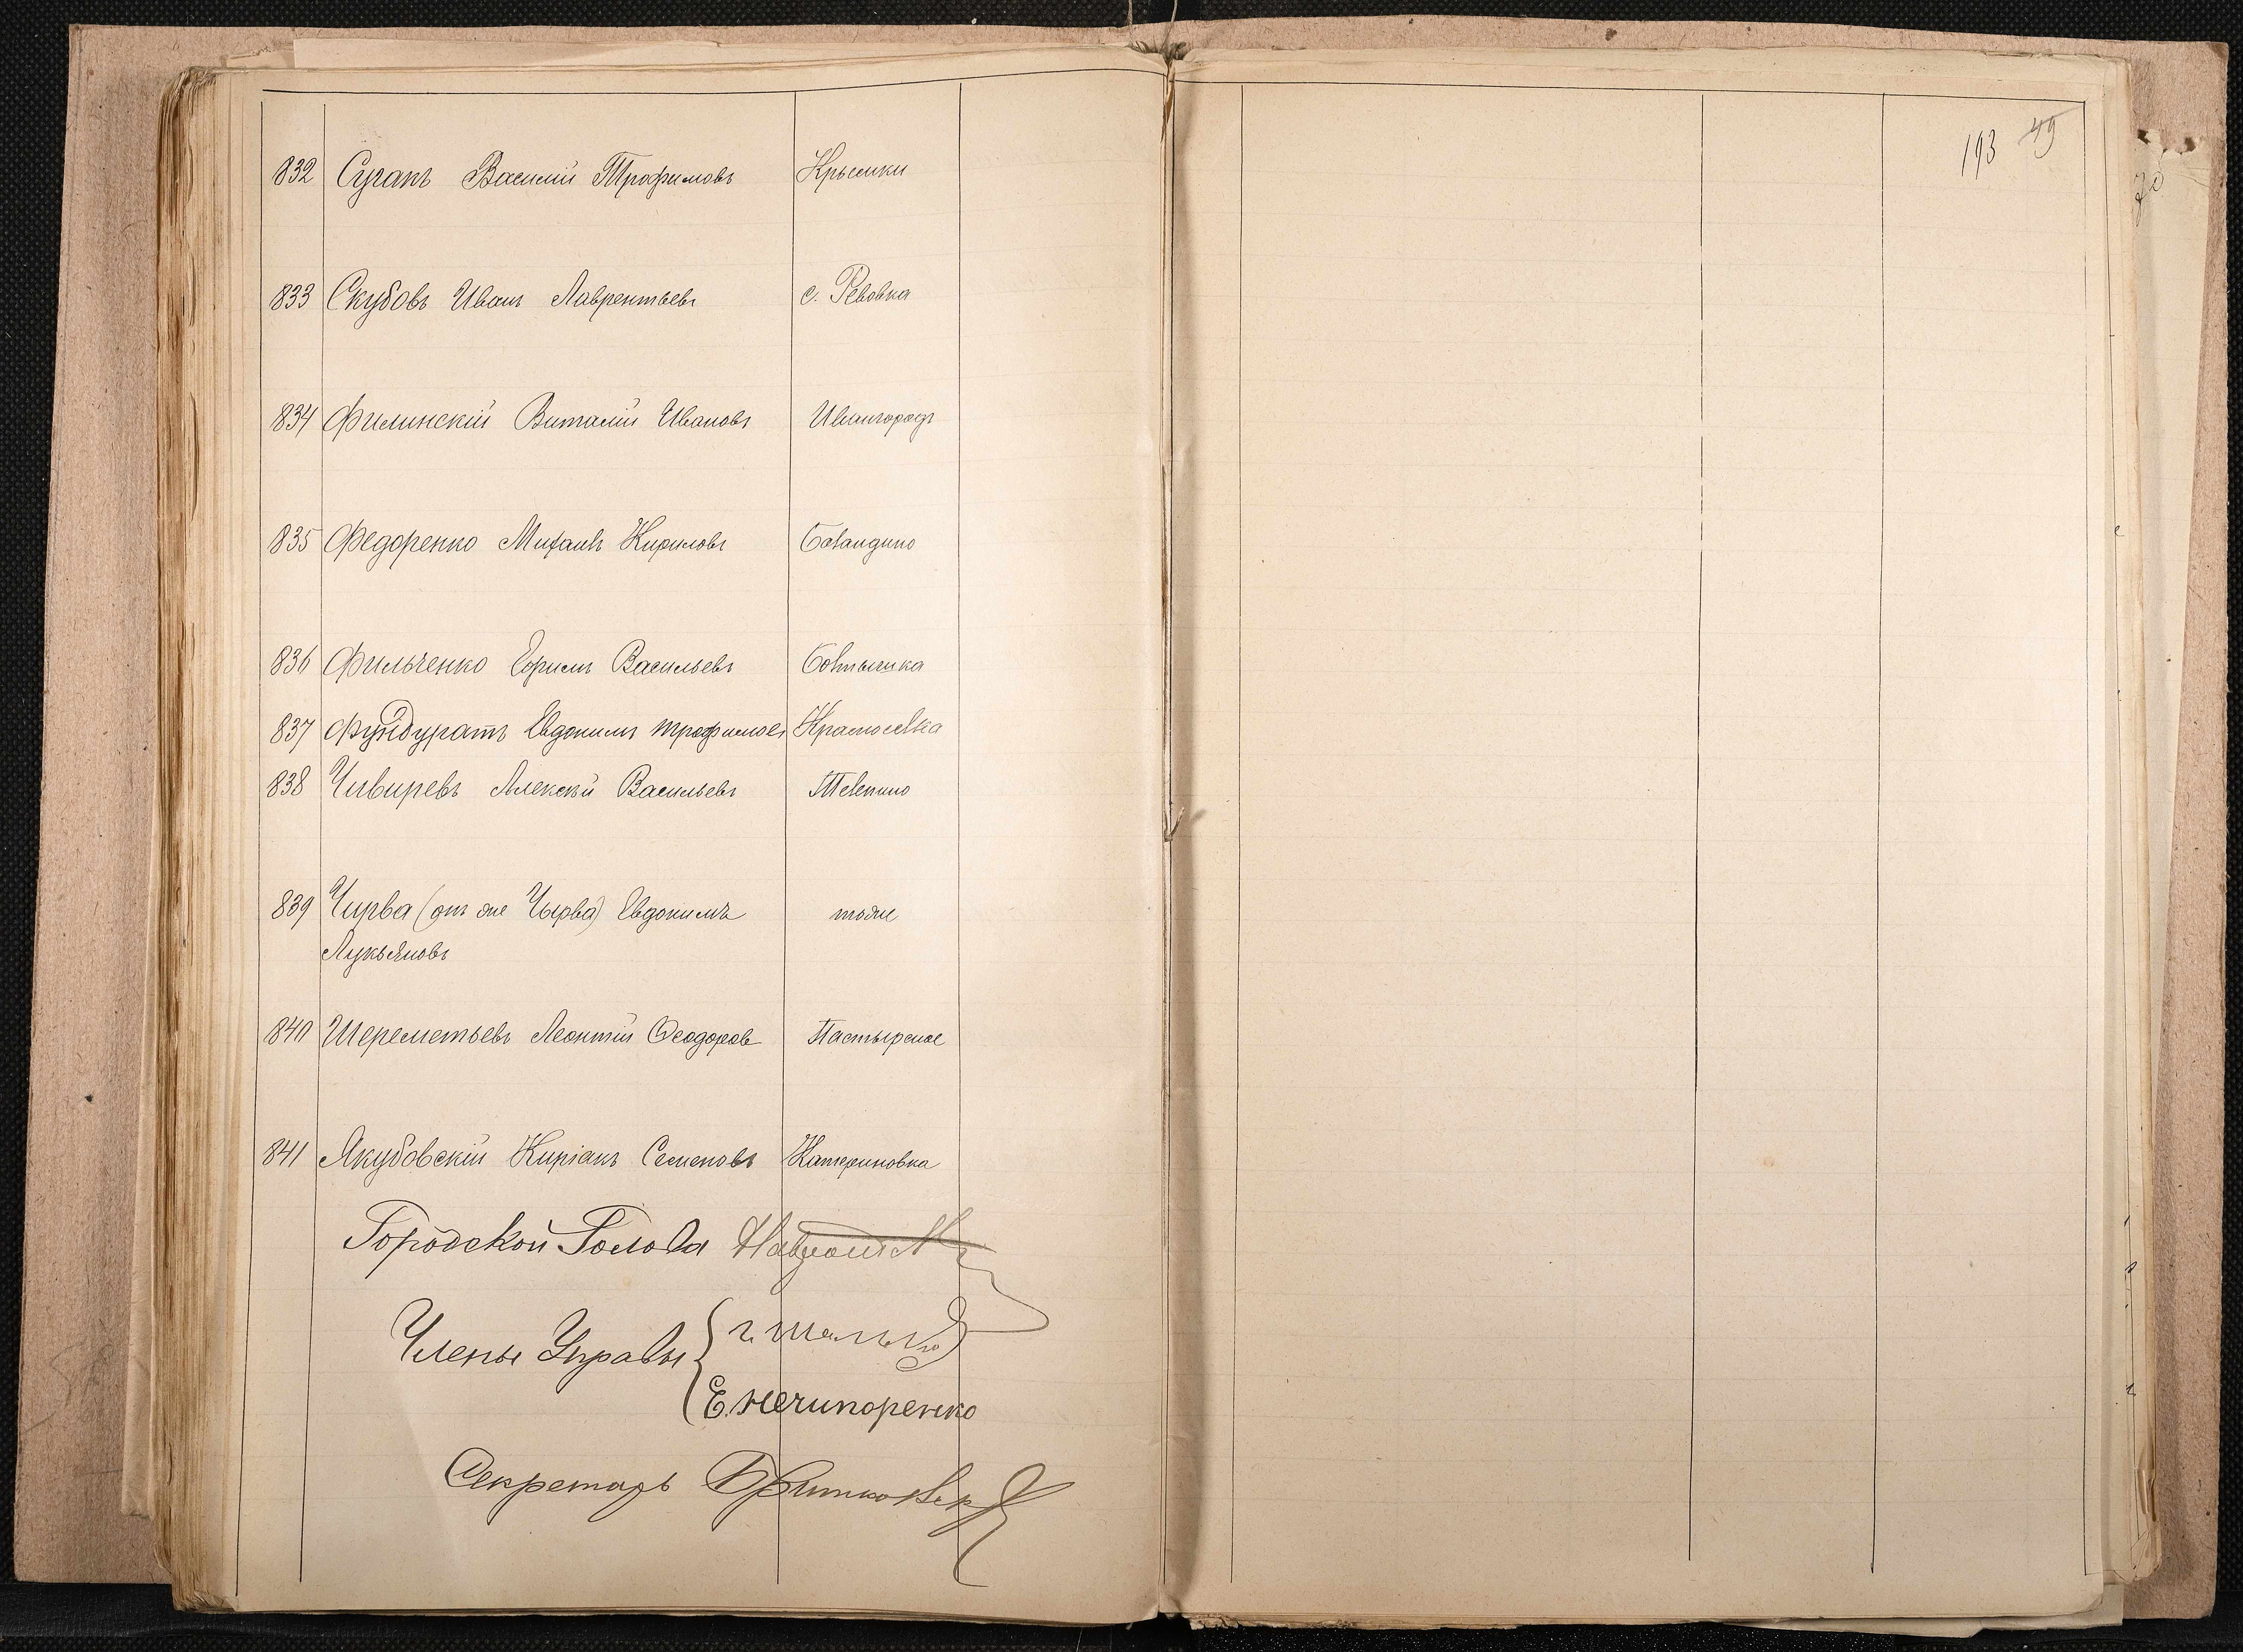 832 Суганъ Василій Трофимовъ Крымки
833 Скубовъ Иванъ Лаврентьевъ с. Ревовка
834 Филинскій Виталій Ивановъ Ивангородъ
835 Федоренко Михаилъ Кириловъ Баландино
836 Фильченко Ефимъ Васильевъ Бовтышка
837 Фундуратъ Евдокимъ Трофимовъ Красноселка
838 Чивиревъ Алексѣй Васильевъ Телепино
839 Чирва (онъ же Чырва) Евдокимъ тоже
Лукьяновъ
840 Шереметьевъ Леонтій Ѳеодоров Пастырское
841 Якубовскій Киріакъ Семеновъ Катериновка
Городской Голова
Члены Управы
Е. Нечипоренко
Секретарь
193 49